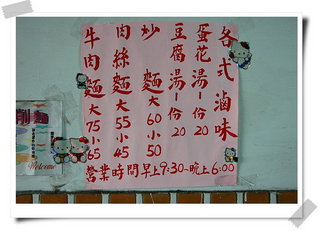 各式滷味
蛋花湯一份20
豆腐湯一份20
炒麵大60小50
肉絲麵大55小45
牛肉麵大75小65
營業時間早上9:30~晚上6:00
Welcome